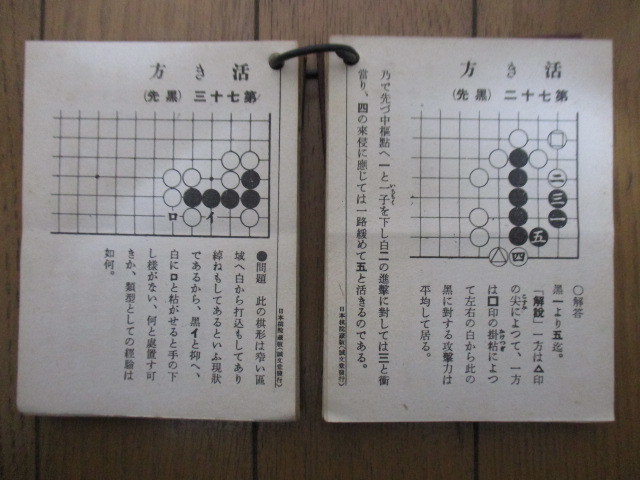 活き方
第七十二 (黑先)
二
三
一
五
四
○解答
黑一より五迄。
「解說」一方は△印
の尖によつて、一方
は□印の掛粘によつ
て左右の白から此の
黑に對する攻擊力は
平均して居る。
乃で先づ中樞點へ一と一子を下し白二の進擊に對しては三と衝
當り、四の來侵に應じては一路緩めて五と活きるのである。
日本棋院藏版(誠文堂發行)
活き方
第七十三 (黑先)
イ
ロ
●問題 此の棋形は窄い區
域へ白から打込もしてあり
綽ねもしてあるといふ現狀
であるから、黑イと抑へ、
白にロと粘がせると手の下
し樣がない、何と處置す可
きか、類型としての經驗は
如何。
日本棋院藏版(誠文堂發行)